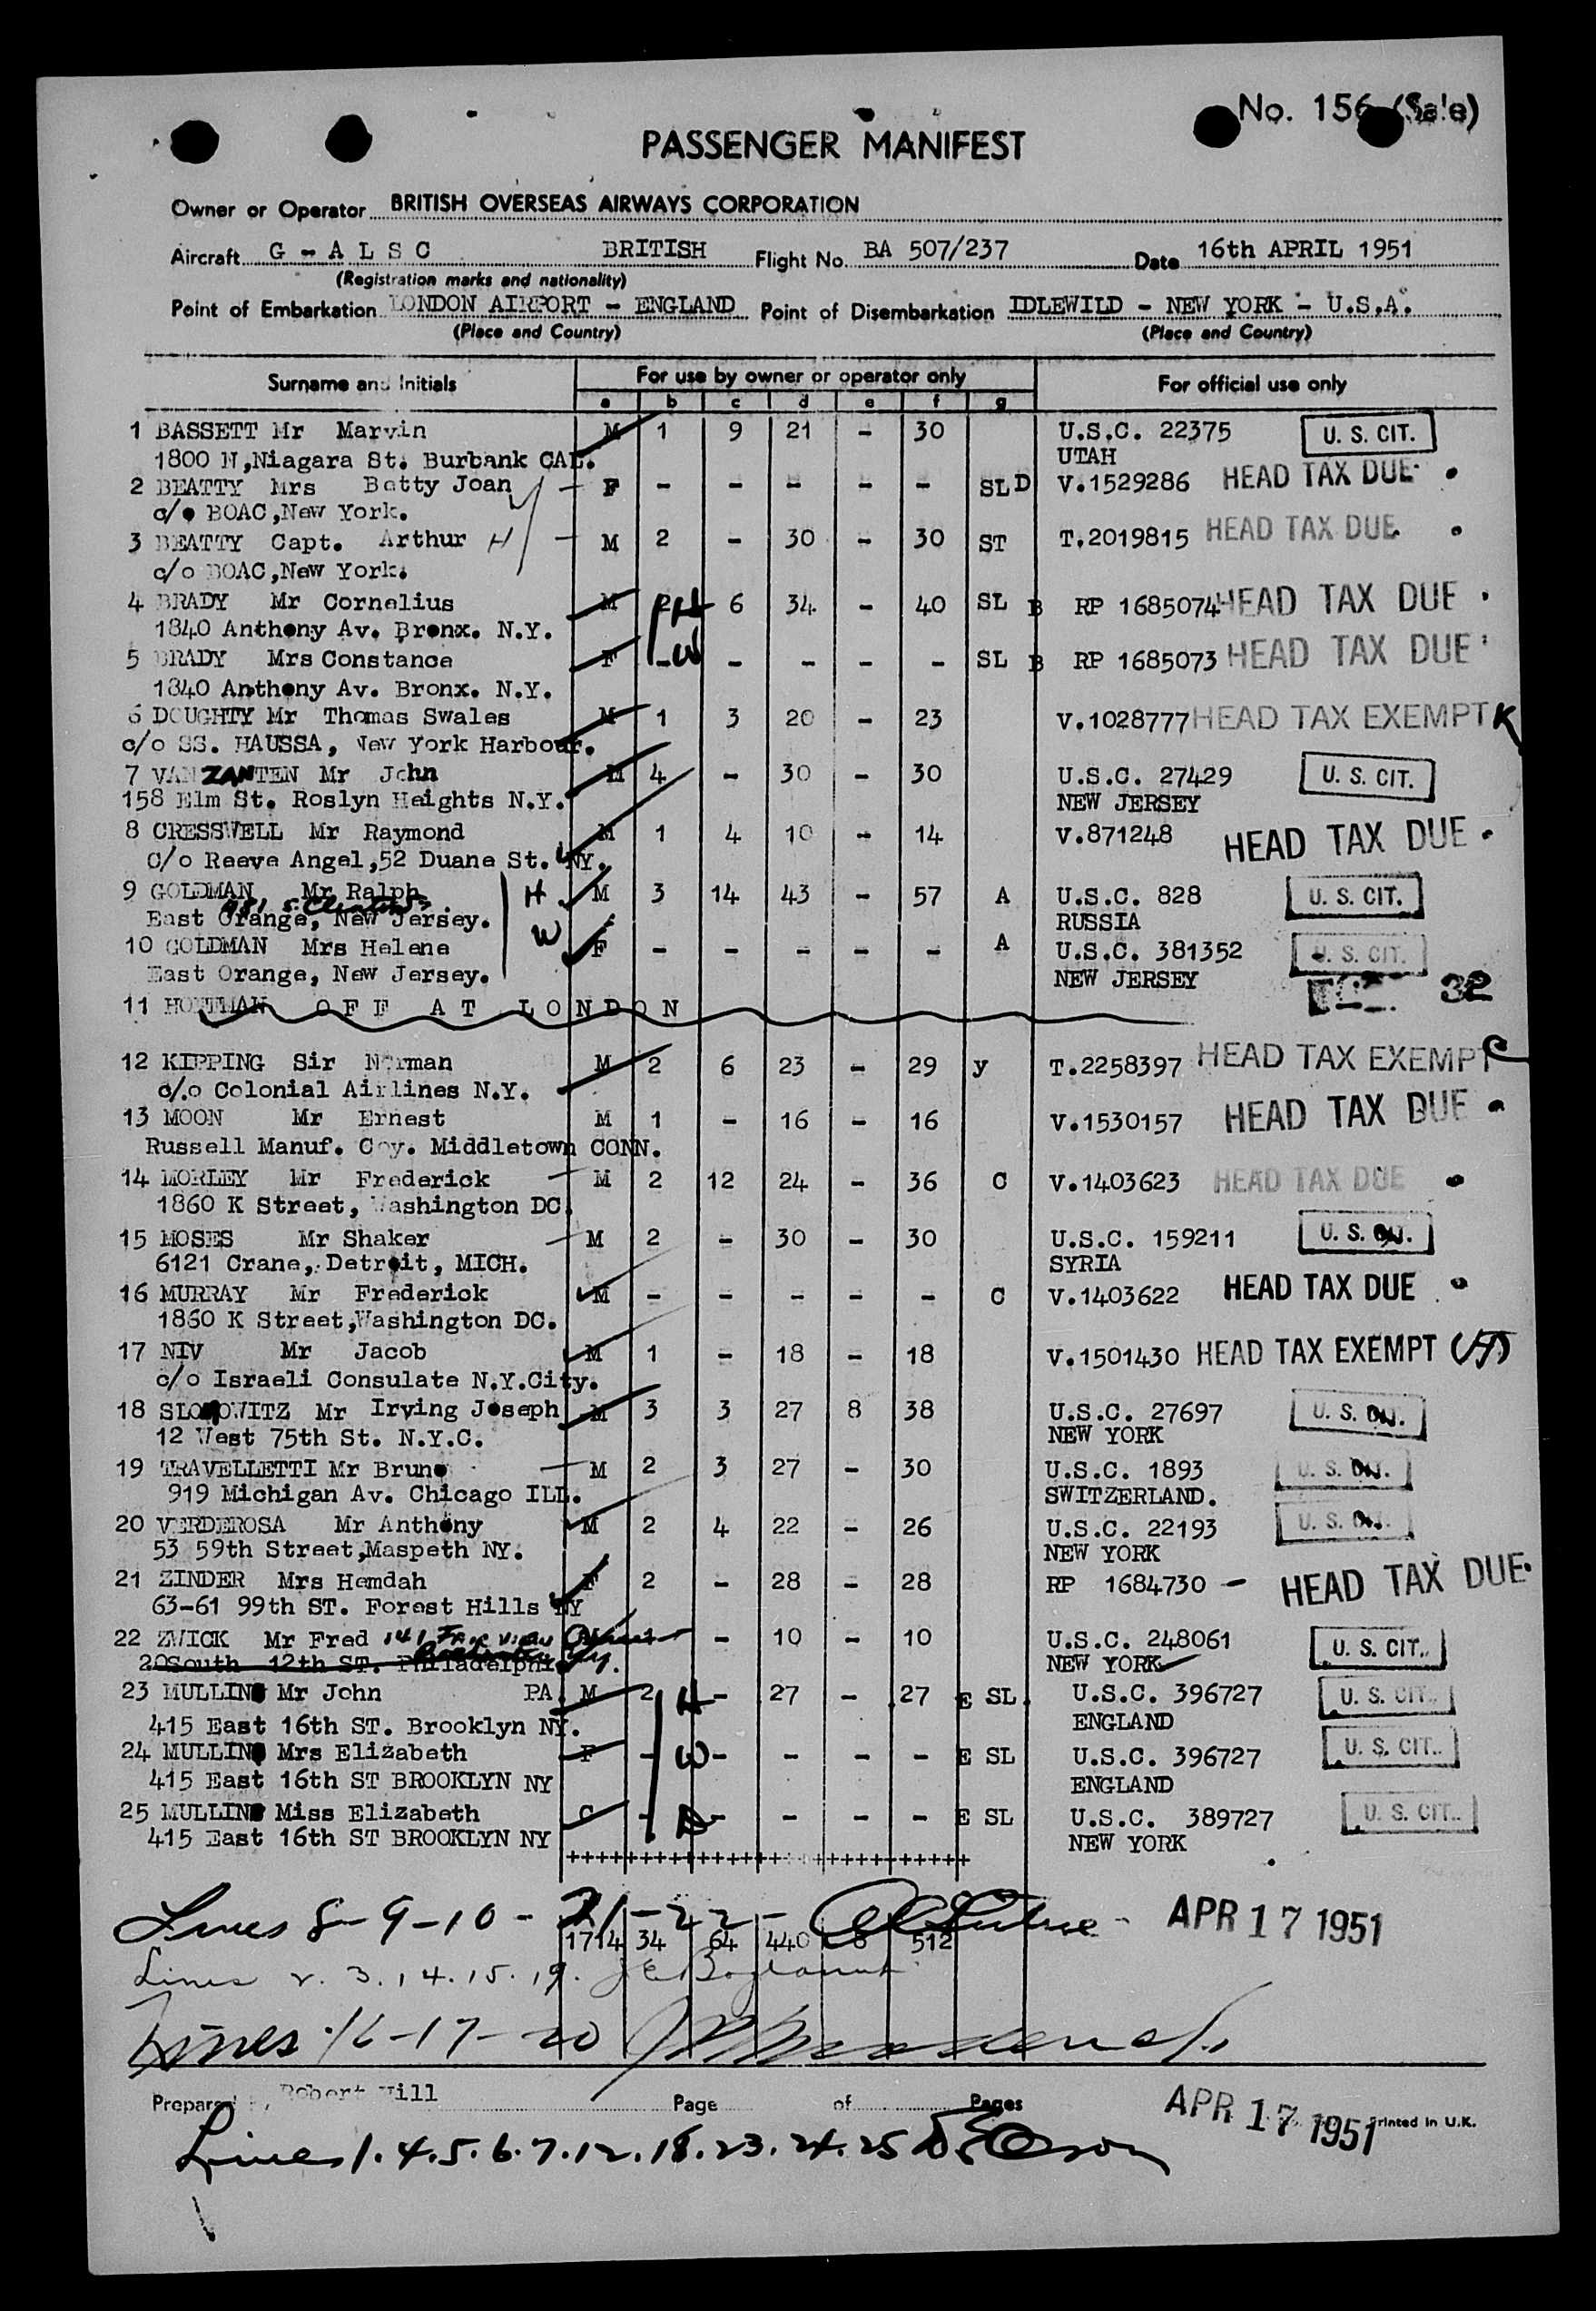 No. 156 (Sale)
PASSENGER MANIFEST
Owner or Operator BRITISH OVERSEAS AIRWAYS CORPORATION
Aircraft G - A L S C BRITISH Flight No. BA 507/237 Date 16th APRIL 1951
(Registration marks and nationality)
Point of Embarkation LONDON AIRPORT - ENGLAND Point of Disembarkation IDLEWILD - NEW YORK - U.S.A.
(Place and Country) (Place and Country)
Surname and Initials For use by owner or operator only For official use only
a b c d e f g
1 BASSETT Mr Marvin M 1 9 21 - 30 U.S.C. 22375 U. S. CIT.
1800 N,Niagara St. Burbank CAL. UTAH
2 BEATTY Mrs Betty Joan W - F - - - - - SL D V.1529286 HEAD TAX DUE
c/o BOAC,New York.
3 BEATTY Capt. Arthur H - M 2 - 30 - 30 ST T.2019815 HEAD TAX DUE
c/o BOAC,New York.
4 BRADY Mr Cornelius M 2 H 6 34 - 40 SL B RP 1685074 HEAD TAX DUE
1840 Anthony Av. Bronx. N.Y.
5 BRADY Mrs Constance F - W - - - - SL B RP 1685073 HEAD TAX DUE
1840 Anthony Av. Bronx. N.Y.
6 DOUGHTY Mr Thomas Swales M 1 3 20 - 23 V.1028777 HEAD TAX EXEMPT K
c/o SS. HAUSSA, New York Harbour.
7 VAN ZANTEN Mr John M 4 - 30 - 30 U.S.C. 27429 U. S. CIT.
158 Elm St. Roslyn Heights N.Y. NEW JERSEY
8 CRESSWELL Mr Raymond M 1 4 10 - 14 V.871248 HEAD TAX DUE
C/o Reeve Angel,52 Duane St. NY.
9 GOLDMAN Mr Ralph H M 3 14 43 - 57 A U.S.C. 828 U. S. CIT.
981 S. Clinton
East Orange, New Jersey. RUSSIA
10 GOLDMAN Mrs Helene W F - - - - - A U.S.C. 381352 U. S. CIT.
East Orange, New Jersey. NEW JERSEY
32
11 HOFFMAN OFF AT LONDON
12 KIPPING Sir Norman M 2 6 23 - 29 y T.2258397 HEAD TAX EXEMPT C
c/o Colonial Airlines N.Y.
13 MOON Mr Ernest M 1 - 16 - 16 V.1530157 HEAD TAX DUE
Russell Manuf. Coy. Middletown CONN.
14 MORLEY Mr Frederick - M 2 12 24 - 36 C V.1403623 HEAD TAX DUE
1860 K Street, Washington DC.
15 MOSES Mr Shaker - M 2 - 30 - 30 U.S.C. 159211 U. S. CIT.
6121 Crane, Detroit, MICH. SYRIA
16 MURRAY Mr Frederick M - - - - - C V.1403622 HEAD TAX DUE
1860 K Street,Washington DC.
17 NIV Mr Jacob M 1 - 18 - 18 V.1501430 HEAD TAX EXEMPT
c/o Israeli Consulate N.Y.City.
18 Mr Irving Joseph M 3 3 27 8 38 U.S.C. 27697 U. S. CIT.
12 West 75th St. N.Y.C. NEW YORK
19 TRAVELLETTI Mr Bruno - M 2 3 27 - 30 U.S.C. 1893 U. S. CIT.
919 Michigan Av. Chicago ILL. SWITZERLAND.
20 VERDEROSA Mr Anthony M 2 4 22 - 26 U.S.C. 22193 U. S. CIT.
53 59th Street,Maspeth NY. NEW YORK
21 ZINDER Mrs Hemdah F 2 - 28 - 28 RP 1684730 - HEAD TAX DUE
63-61 99th ST. Forest Hills NY
22 ZWICK Mr Fred 141 Fair View M 1 - 10 - 10 U.S.C. 248061 U. S. CIT.
20South 12th ST. Philadelphia NEW YORK
23 MULLIN Mr John PA. M 2 H - 27 - 27 E SL. U.S.C. 396727 U. S. CIT.
415 East 16th ST. Brooklyn NY. ENGLAND
24 MULLIN Mrs Elizabeth F - W - - - - E SL U.S.C. 396727 U. S. CIT.
415 East 16th ST BROOKLYN NY ENGLAND
25 MULLIN Miss Elizabeth C - D - - - - E SL U.S.C. 389727 U. S. CIT.
415 East 16th ST BROOKLYN NY NEW YORK
++++++++++++++++++++++++++++
Lines 8-9-10-21-22- APR 17 1951
1714 34 64 440 8 512
Lines 2. 3. 14. 15. 19.
Lines 16-17-20
Prepared by Robert Hill Page of Pages APR 17 1951
Printed in U.K.
Lines 1. 4. 5. 6. 7. 12. 18. 23. 24. 25